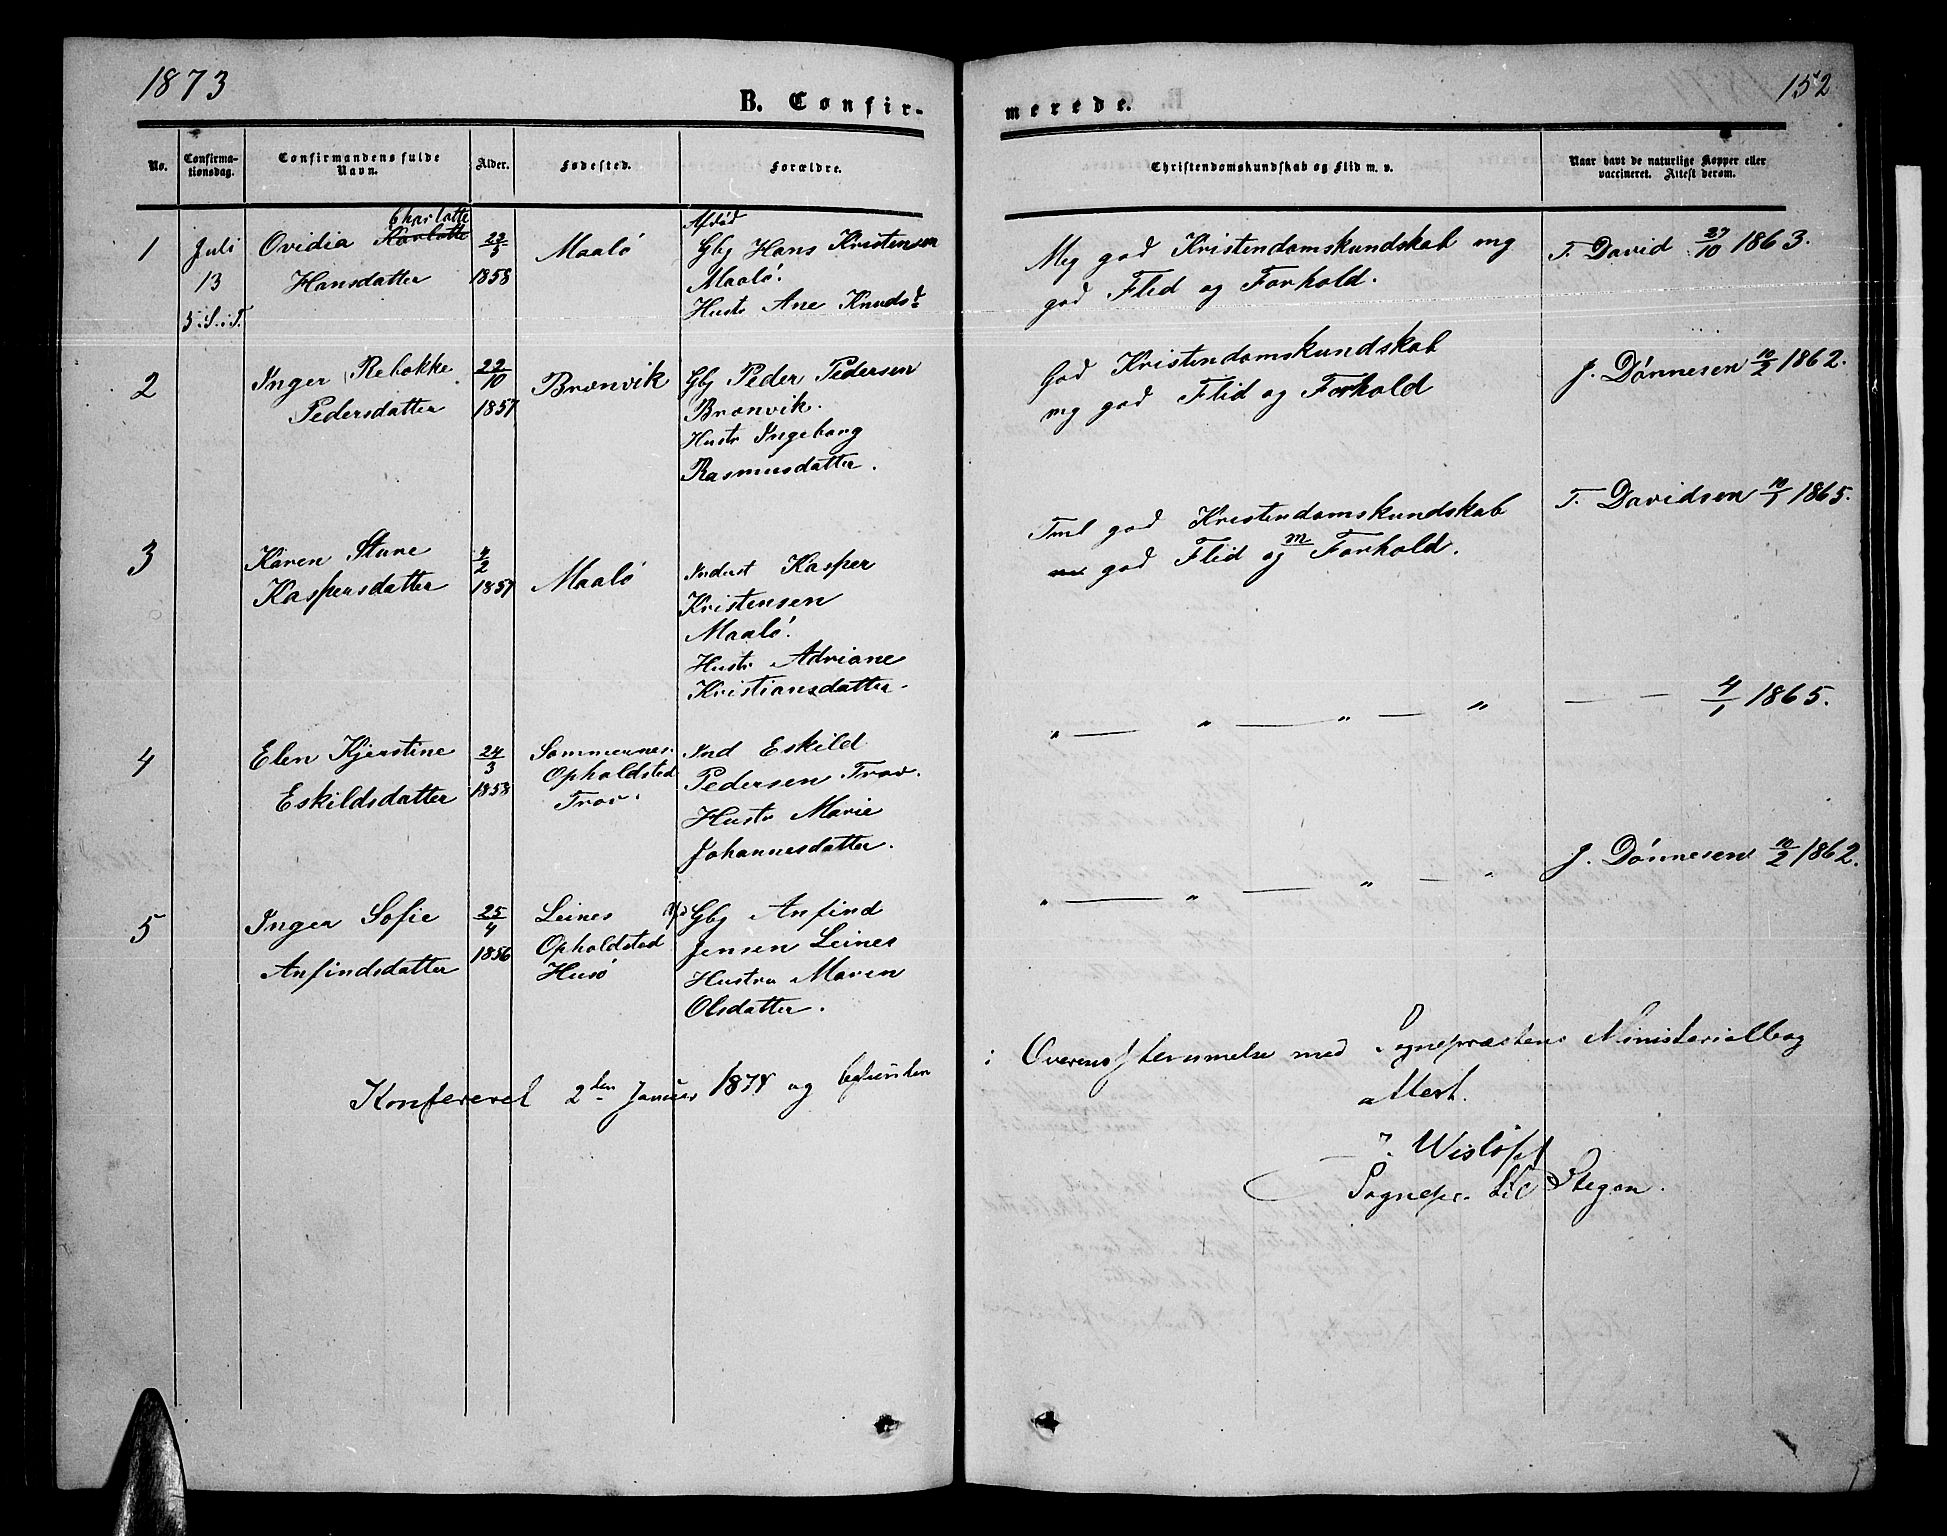 1873
152
B. Confir-
merede.
No.
Confirma-
tionsdag.
Confirmandens fulde
Navn.
Alder.
Fødested.
Forældre.
Christendomskundskab og Flid m. v.
Naar havt de naturlige Kopper eller
vaccineret. Attest derom.
1
Juli
13
5. S. i T.
Charlotte
Ovidia Karlotte
Hansdatter
1858
Maalö
Afdöd
Gbg Hans Kristensen
Maalö.
Hustr Ane Knudsd
Meg god Kristendomskundskab mg
god Flid og Forhold.
T. David 27/10 1863.
2
Inger Rebekke
Pedersdatter
22/10
1857
Brænvik
Gbg Peder Pedersen
Brænvik.
Hustr Ingeborg
Rasmusdatter.
God Kristendomskundskab
mg god Flid og Forhold
J. Dönnesen 10/2 1862.
3
Karen Stine
Kaspersdatter
4/2
1857
Maalö
Inderst Kasper
Kristensen
Maalö.
Hustr Adriane
Kristiansdatter.
Tml god Kristendomskundskab
m god Flid og m Forhold.
T. Davidsen 10/1 1865.
4
Elen Kjerstine
Eskildsdatter
24/3
1858
Sommernes.
Opholdsted
Trov.
Ind Eskild
Pedersen Trov.
Hustr Marie
Johannesdatter.
" — " — " — "
— — 4/1 1865.
5
Inger Sofie
Anfindsdatter
25/4
1856
Leines
Opholdsted
Husö
Afd Gbg Anfind
Jensen Leines
Hustru Maren
Olsdatter.
" — " — " — "
J. Dönnesen 10/2 1862.
Konfereret 2den Januar 1874 og befunden
i Overensstemmelse med Sognepræstens Ministerialbog
attest.
J. Wislöff
Sognepr. til Stegen.